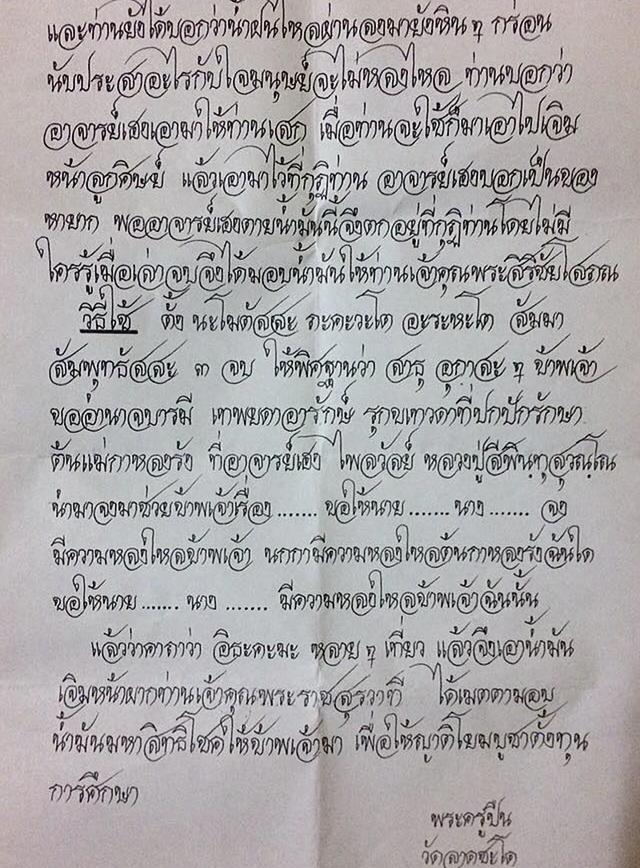 และท่านยังได้บอกว่าน้ำฝนไหลผ่านลงมายังหิน ๆ กร่อน
นับประสาอะไรกับใจมนุษย์จะไม่หลงไหล ท่านบอกว่า
อาจารย์เฮงเอามาให้ท่านเสก เมื่อท่านจะใช้ก็มาเอาไปเจิม
หน้าลูกศิษย์ แล้วเอามาไว้ที่กุฏิท่าน อาจารย์เฮงบอกเป็นของ
หายาก พออาจารย์เฮงตายน้ำมันนี้จึงตกอยู่ที่กุฏิท่านโดยไม่มี
ใครรู้เมื่อเล่าจบจึงได้มอบน้ำมันให้ท่านเจ้าคุณพระสิริชัยโสภณ
วิธีใช้ ตั้ง นะโมตัสสะ ภะคะวะโต อะระหะโต สัมมา
สัมพุทธัสสะ ๓ จบ ให้พิศฐานว่า สาธุ อุกาสะ ๆ ข้าพเจ้า
ขออำนาจบารมี เทพยดาอารักษ์ รุกขเทวดาที่ปกปักรักษา
ต้นแม่กาหลงรัง ที่อาจารย์เฮง ไพลวัลย์ หลวงปู่สีพินฺทุสุวณฺโณ
นำมาจงมาช่วยข้าพเจ้าเรื่อง ....... ขอให้นาย ....... นาง ....... จง
มีความหลงไหลข้าพเจ้า นกกามีความหลงไหลต้นกาหลงรังฉันใด
ขอให้นาย ....... นาง ....... มีความหลงไหลข้าพเจ้าฉันนั้น
แล้วว่าคาถาว่า อิธะคะมะ หลาย ๆ เที่ยว แล้วจึงเอาน้ำมัน
เจิมหน้าผากท่านเจ้าคุณพระราชสุรวาที ได้เมตตามอบ
น้ำมันมหาสิทธิโชคให้ข้าพเจ้ามา เพื่อให้ญาติโยมบูชาตั้งทุน
การศึกษา
พระครูปืน
วัดลาดชะโด